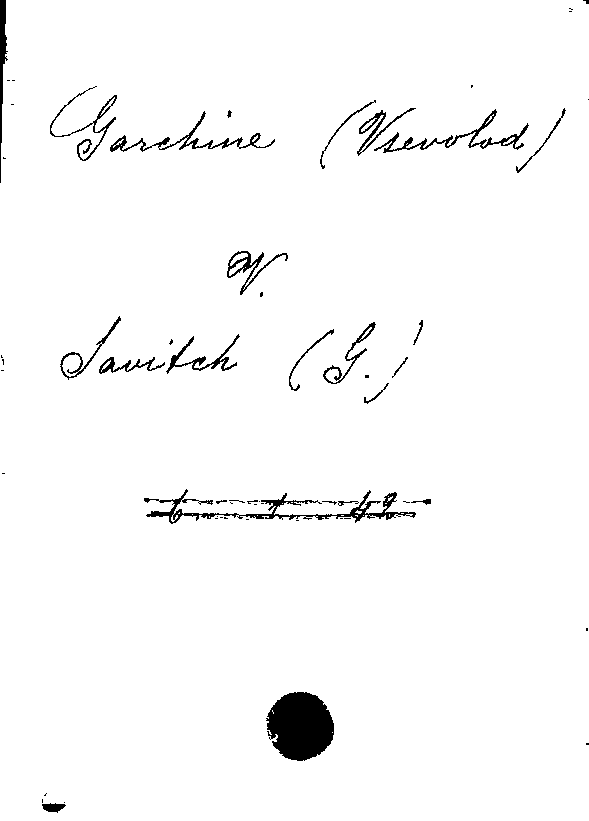 Garchine (Vsevolod)
V.
Savitch (G.)
6 1 49